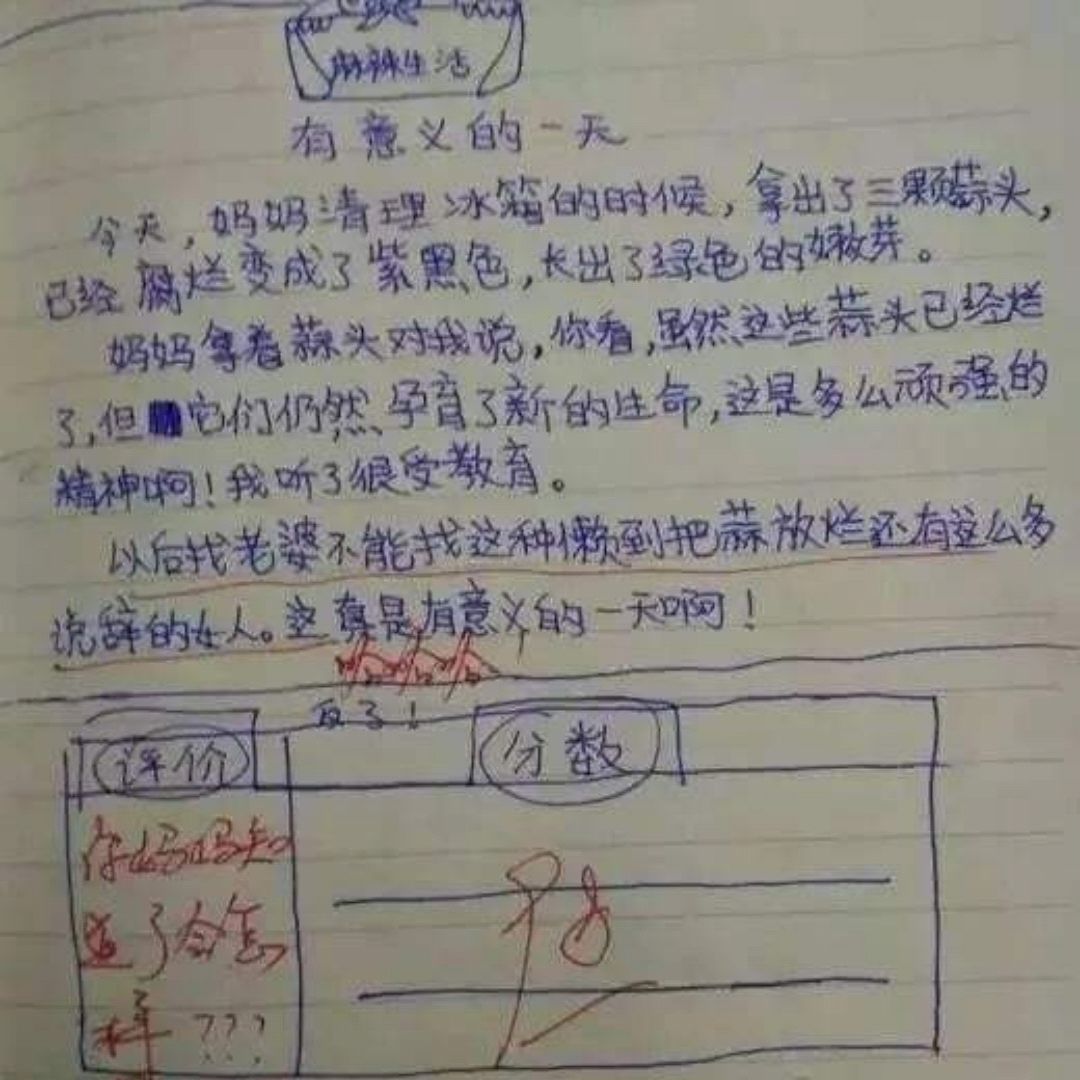 麻辣生活
有意义的一天
今天，妈妈清理冰箱的时候，拿出了三颗蒜头，
已经腐烂变成了紫黑色，长出了绿色的嫩芽。
妈妈拿着蒜头对我说，你看，虽然这些蒜头已经烂
了，但它们仍然孕育了新的生命，这是多么顽强的
精神啊！我听了很受教育。
以后找老婆不能找这种懒到把蒜放烂还有这么多
说辞的女人。这真是有意义的一天啊！
哈哈哈
评价
分数
你妈妈知
道了会怎
样???
98